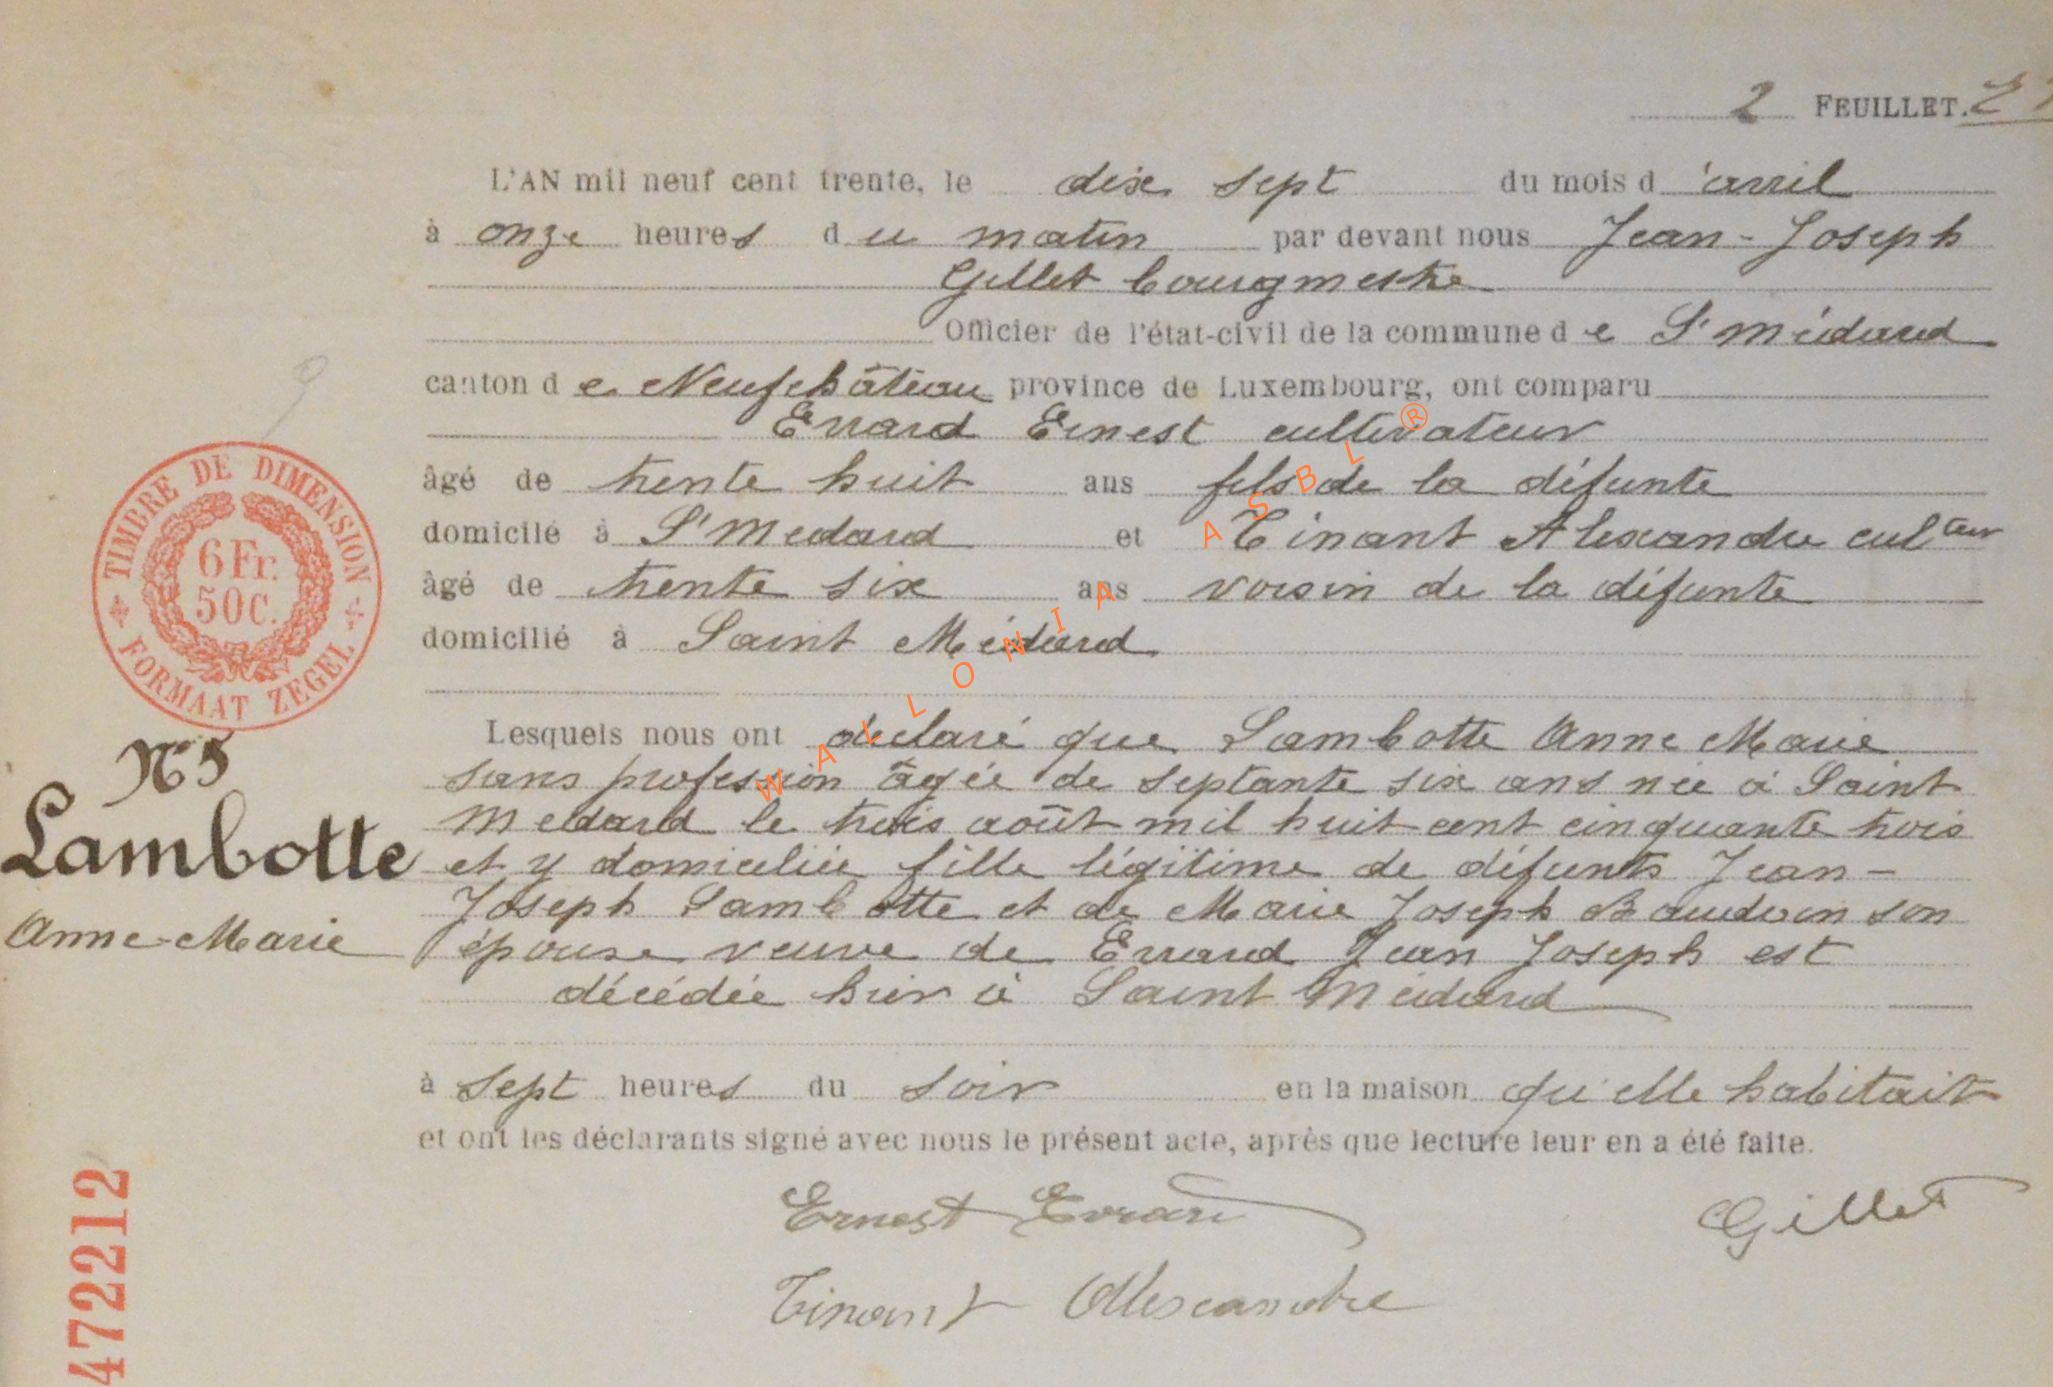 2 FEUILLET.
L'AN mil neuf cent trente, le dix sept du mois d'avril
à onze heures du matin par devant nous Jean-Joseph
Gillet bourgmestre
Officier de l'état-civil de la commune de St Médard
canton de Neufchâteau province de Luxembourg, ont comparu
Evrard Ernest cultivateur
âgé de trente huit ans fils de la défunte
domicilé à St Medard et Tinant Alexandre culteur
âgé de trente six ans voisin de la défunte
domicilié à Saint Médard
Lesquels nous ont déclaré que Lambotte Anne Marie
sans profession âgée de septante six ans née à Saint
Medard le trois août mil huit cent cinquante trois
et y domiciliée fille légitime de défunts Jean-
Joseph Lambotte et de Marie Joseph Baudoin son
épouse veuve de Evrard Jean Joseph est
décédée hier à Saint Médard
à sept heures du soir en la maison qu'elle habitait
et ont les déclarants signé avec nous le présent acte, après que lecture leur en a été faite.
Ernest Evrard Gillet
Tinant Alexandre
TIMBRE DE DIMENSION
6 Fr.
50 C.
FORMAAT ZEGEL
N° 5
Lambotte
Anne-Marie
472212
WALLONIA ASBL ®